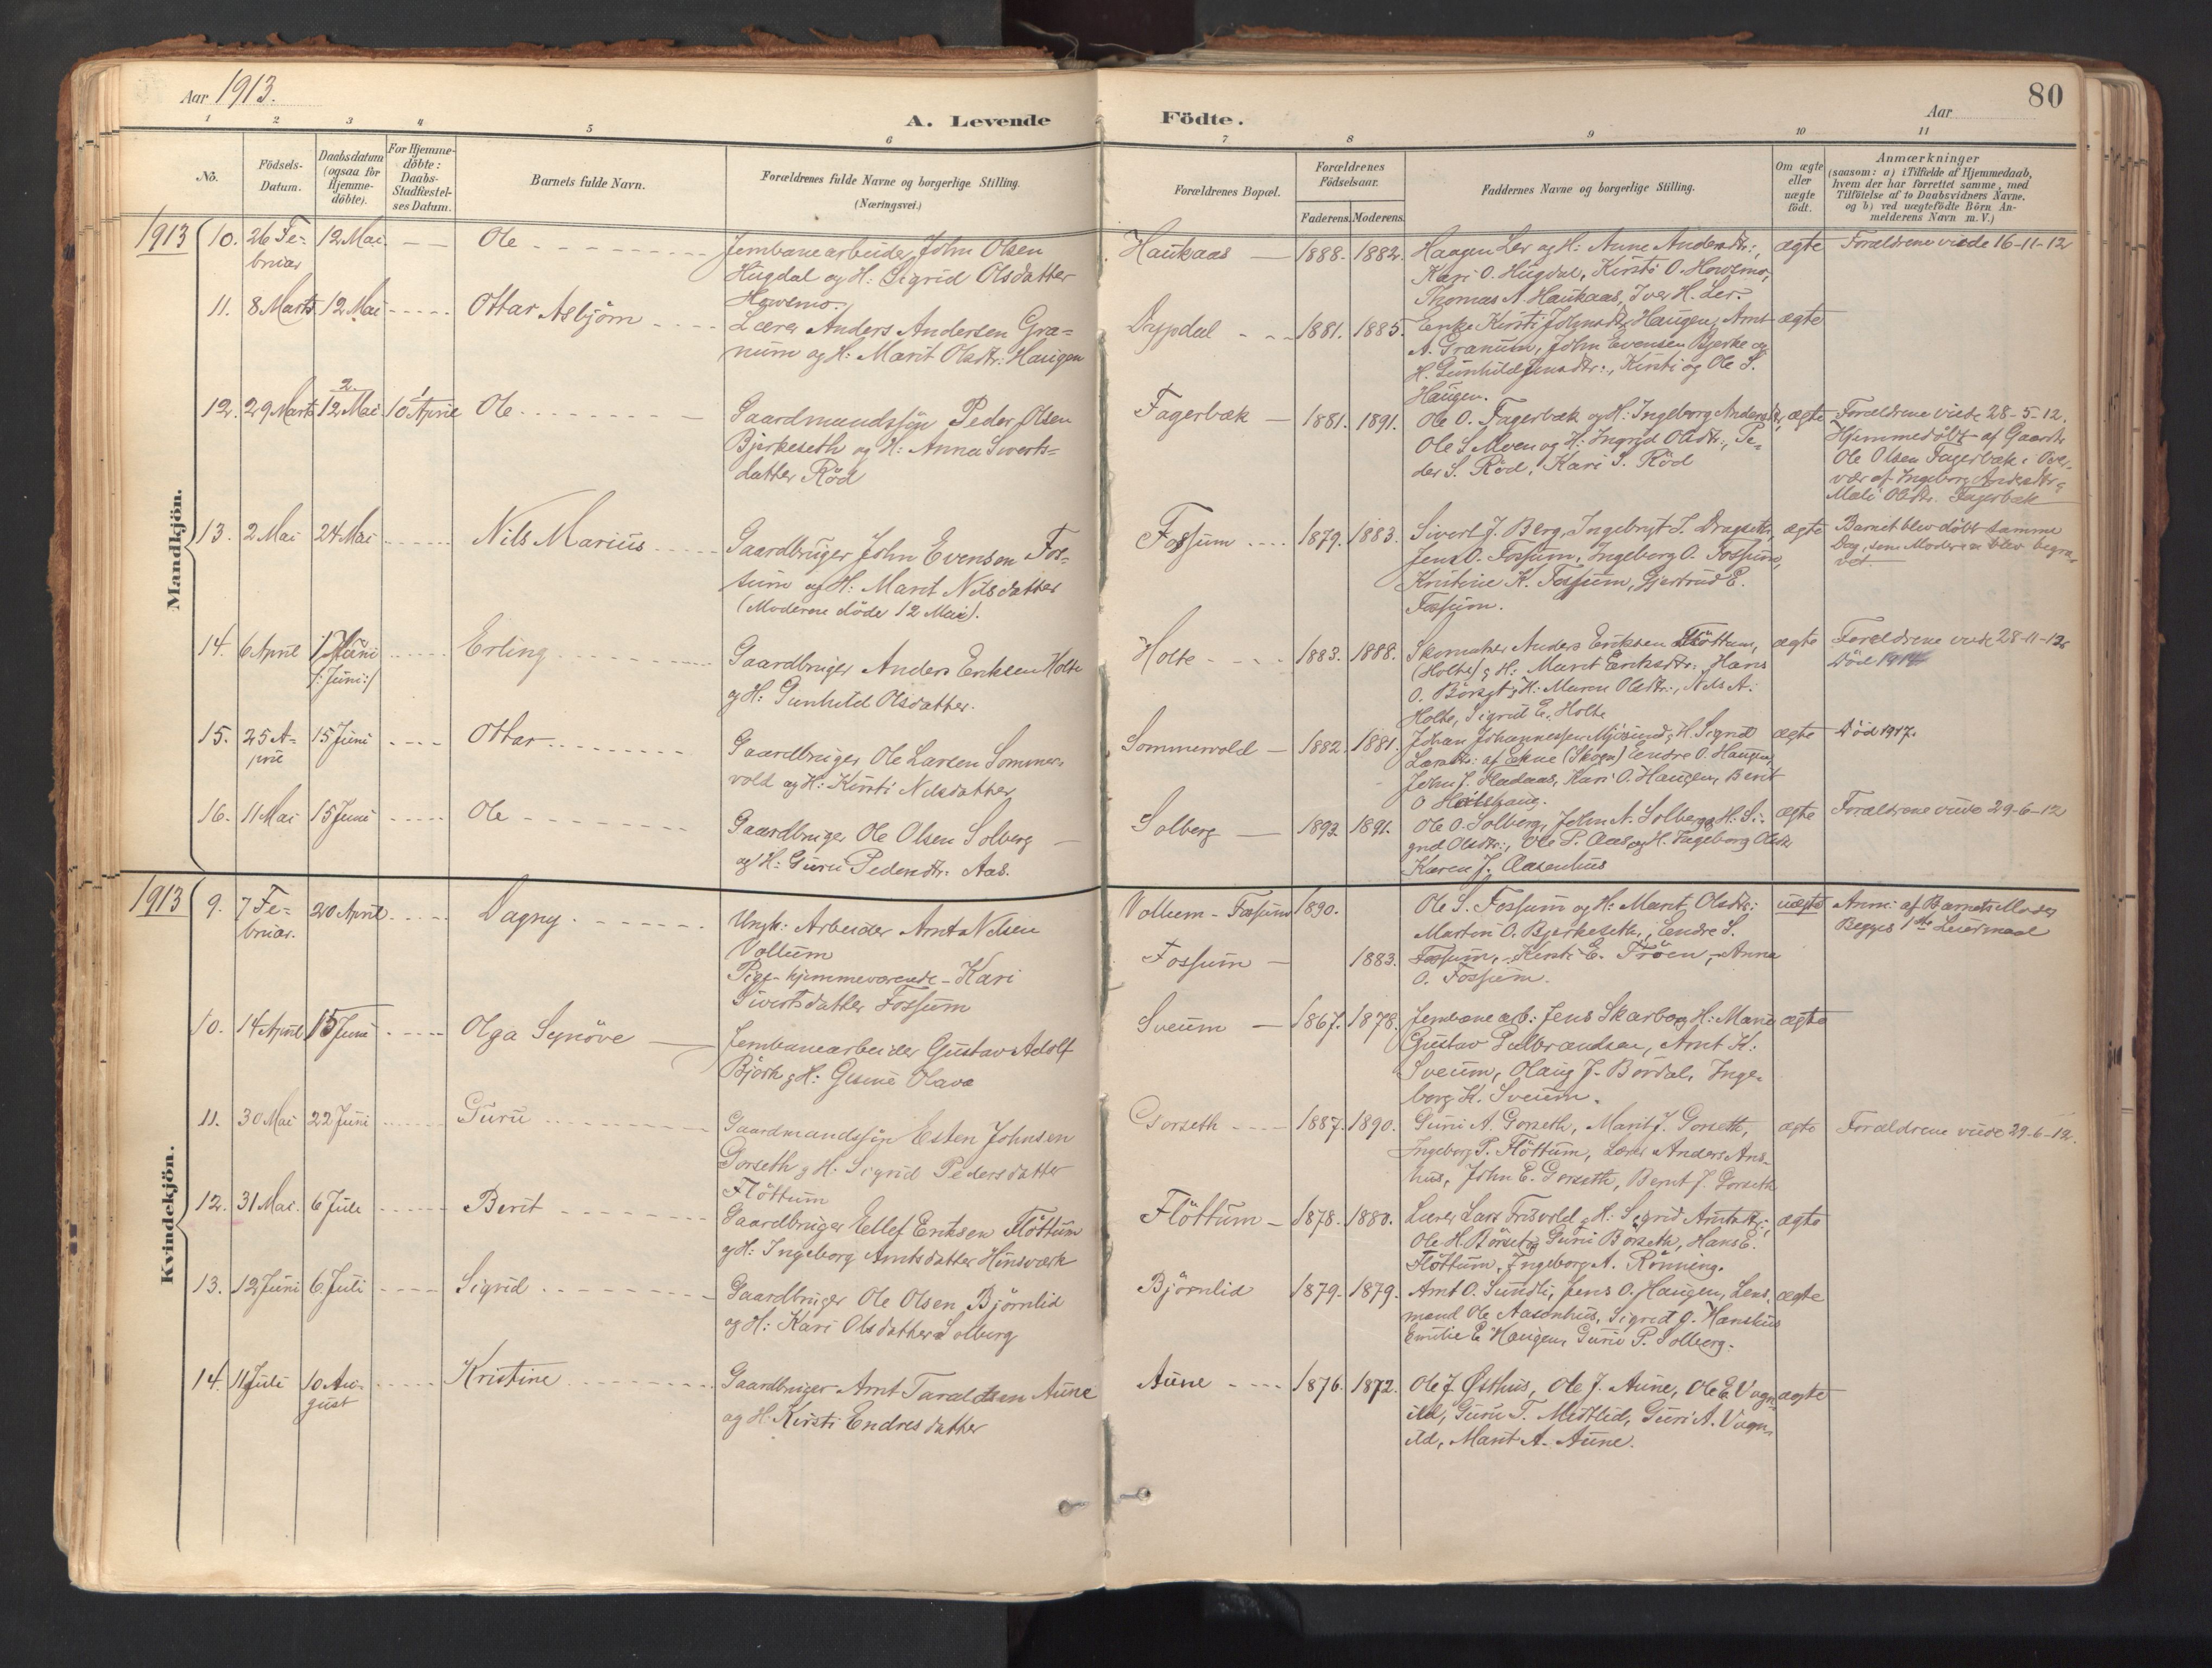 Aar 1913.
A. Levende
Födte.
Aar
80
1 2 3 4 5 6 7 8 9 10 11
No.
Födsels-Datum.
Daabsdatum (ogsaa for Hjemme-döbte).
For Hjemme-döbte: Daabs-Stadfæstel-ses Datum.
Barnets fulde Navn.
Forældrenes fulde Navne og borgerlige Stilling.
(Næringsvei.)
Forældrenes Bopæl.
Forældrenes Födselsaar.
Faderens. Moderens.
Faddernes Navne og borgerlige Stilling.
Om ægte eller uægte födt.
Anmærkninger
(saasom: a) i Tilfælde af Hjemmedaab,
hvem der har forrettet samme, med
Tilföielse af to Daabsvidners Navne,
og b) ved uægtefödte Börn An-
melderens Navn m. V.)
Mandkjön.
1913 10. 26 Fe-
bruar 12 Mai - - Ole
Jernbanearbeider John Olsen
Hugdal og H: Sigrid Olsdatter
Howsmo.
Haukaas 1888. 1882.
Haagen Ler og H: Anne Andersdtr:,
Kari O. Hugdal, Kirsti O. Howsmo,
Thomas A. Haukaas, Iver H. Ler.
ægte Forældrene viede 16-11-12
11. 8 Marts 12 Mai Ottar Asbjörn
Lærer Anders Andersen Gra-
num og H: Marit Olsdtr: Haugen
Dypdal 1881. 1885.
Enke Kirsti Johnsdtr: Haugen, Arnt
A. Granum, John Evensen Bjerke og
H. Gunhild Jensdtr:, Kirsti og Ole S.
Haugen.
ægte
12. 29 Marts 2 12 Mai 1 10 April Ole
Gaardmandssön Peder Olsen
Bjerkeseth og H: Anna Siverts-
datter Röd
Fagerbæk 1881. 1891.
Ole O. Fagerbæk og H: Ingeborg Andersdtr,
Ole S. Moen og H: Ingrid Olsdtr:, Pe-
der S. Röd, Kari S. Röd
ægte Forældrene viede 28-5-12.
Hjemmedöbt af Gaardbr.
Ole Olsen Fagerbæk i Over-
vær af Ingeborg Andersdtr. og
Mali Olsdtr. Fagerbæk
13. 2 Mai 24 Mai Nils Marius
Gaardbruger John Evensen Fos-
sum og H: Marit Nilsdatter
(Moderen döde 12 Mai).
Fossum 1879. 1883.
Sivert J. Berg, Ingebrigt I. Dragseth,
Jens O. Fossum, Ingeborg O. Fossum,
Kristine K. Fossum, Gjertrud E.
Fossum.
ægte Barnet blev döbt samme
Dag, som Moderen blev begra-
vet.
14. 6 April 1 Juni
/: Juni :/ Erling
Gaardbruger Anders Eriksen Holte
og H: Gunhild Olsdatter.
Holte 1883. 1888.
Skomaker Anders Eriksen Flöttum,
(Holte) og H: Marit Eriksdtr:, Hans
O. Börset og H: Maren Olsdtr:, Nils A.
Holte, Sigrid E. Holte
ægte Forældrene viede 28-11-12
Död 1914
15. 25 A-
pril 15 Juni Ottar
Gaardbruger Ole Larsen Sommer-
vold og H: Kirsti Nilsdatter
Sommervold 1882. 1881.
Johan Johannessen Mjösund og H. Sigrid
Larsdtr: af Ekne (Skogn) Endre O. Haugen,
John J. Fladaas, Kari O. Haugen, Berit
O
ægte Död 1917.
16. 11 Mai 15 Juni Ole
Gaardbruger Ole Olsen Solberg
og H: Guru Pedersdtr: Aas.
Solberg 1892 1891.
Ole O. Solberg, John A. Solberg og H. Si-
grid Olsdtr:, Ole P. Aas og H. Ingeborg Olsdtr
Karen J. Aasenhus
ægte Forældrene viede 29-6-12
Kvindekjön.
1913 9. 7 Fe-
bruar. 20 April Dagny
Ungk: Arbeider Arnt Nilsen
Vollum
Pige - hjemmeværende - Kari
Sivertsdatter Fossum
Vollum - Fossum 1890.
Fossum 1883.
Ole S. Fossum og H: Marit Olsdtr:
Martin O. Bjerkeseth, Endre S.
Fossum, Kirsti E. Tröen, Anne
O. Fossum.
uægte Anm: af Barnets Moder
Begges 1ste Leiermaal
10. 14 April 15 Juni Olga Synöve
Jernbanearbeider Gustav Adolf
Björk og H: Gesine Olava
Sveum 1867. 1878.
Jernbanearb: Jens Skarbo og H: Marie
Gustav Gulbrandsen, Arnt K.
Sveum, Olaug J. Bordal, Inge-
borg K. Sveum.
ægte
11. 30 Mai 22 Juni Guru
Gaardmandssön Esten Johnsen
Gorseth og H: Sigrid Pedersdatter
Flöttum
Gorseth 1887. 1890.
Guri A. Gorseth, Marit J. Gorseth,
Ingeborg P. Flöttum, Lærer Anders Ans-
hus, John E. Gorseth, Bernt J. Gorseth
ægte Forældrene viede 29-6-12.
12. 31 Mai. 6 Juli Berit
Gaardbruger Ellef Eriksen Flöttum
og H: Ingeborg Arntsdatter Hinsværk
Flöttum 1878. 1880.
Lærer Lars Trisvold og H: Sigrid Arntsdtr:,
Ole H. Börset og Guri Börseth, Hans E.
Flöttum, Ingeborg A. Rönning.
ægte
13. 12 Juni 6 Juli Sigrid
Gaardbruger Ole Olsen Björnlid
og H: Kari Olsdatter Solberg
Björnlid 1879. 1879.
Arnt O. Sundli, Jens O. Haugen, Lens
mand Ole Aasenhus, Sigrid J. Hanshus
Emilie E. Haugen, Guru P. Solberg.
ægte
14. 11 Juli 10 Au-
gust Kristine
Gaardbruger Arnt Taraldsen Aune
og H: Kirsti Endresdatter
Aune 1876. 1872.
Ole J. Østhus, Ole J. Aune, Ole E. Vogn-
ild, Guru T. Midtlid, Guri A. Vogn-
ild, Marit A. Aune.
ægte